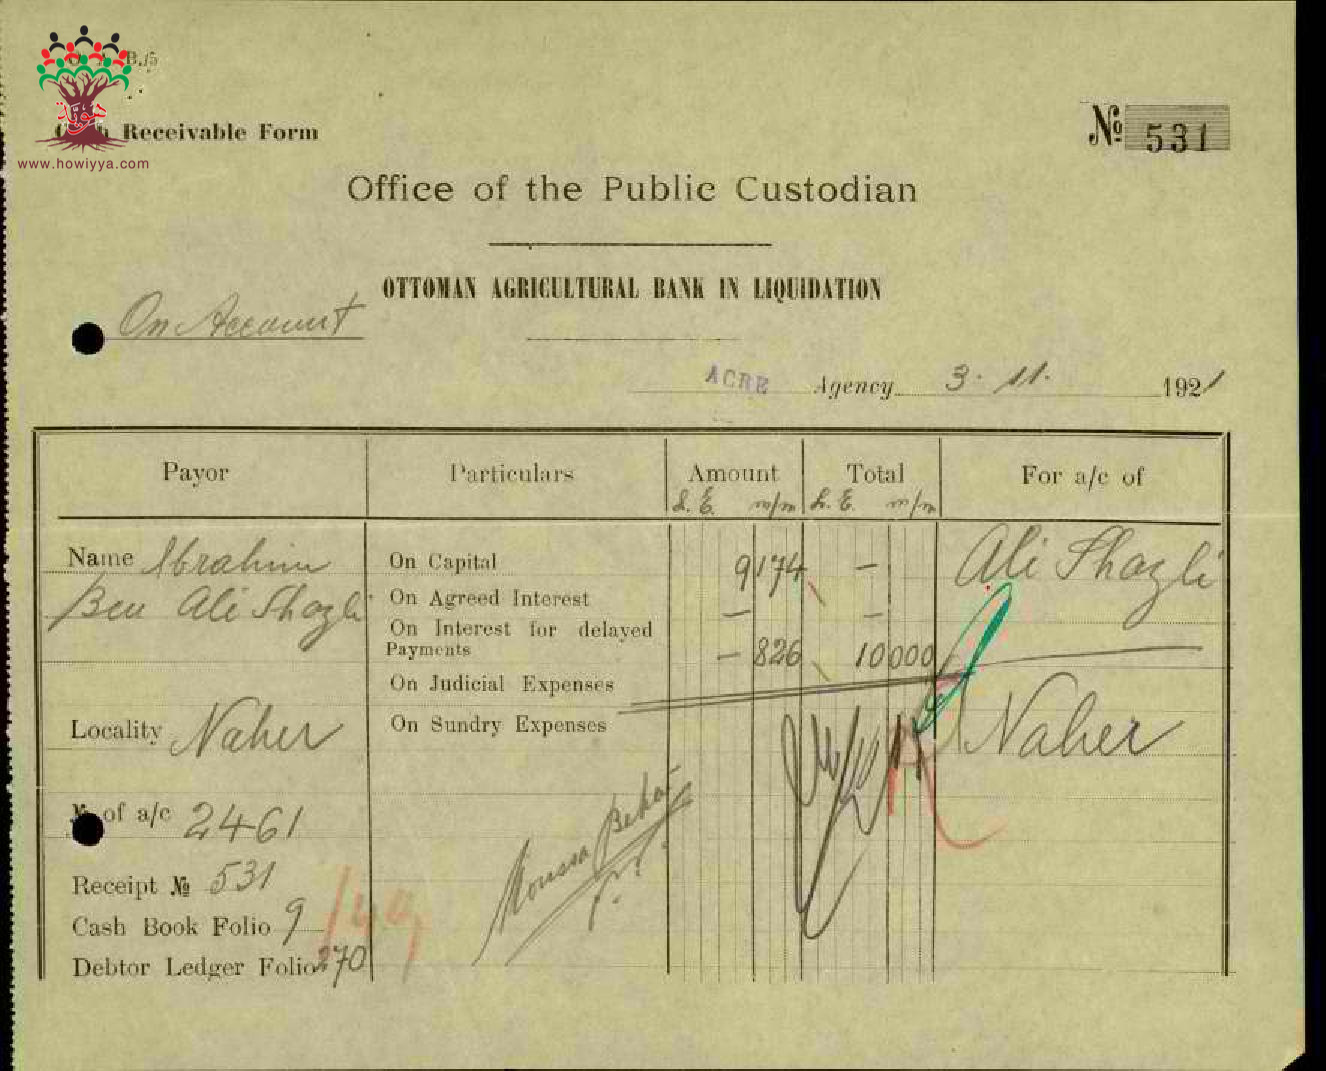 B./5
Cash Receivable Form
www.howiyya.com
№ 531
Office of the Public Custodian
OTTOMAN AGRICULTURAL BANK IN LIQUIDATION
On Account
ACRE Agency 3. 11. 1921
Payor Particulars Amount Total For a/c of
L. E. m/m L. E. m/m
Name Ibrahim On Capital 9 174 — Ali Shazli
Ben Ali Shazli On Agreed Interest — —
On Interest for delayed
Payments — 826 10 000
On Judicial Expenses
Locality Naher On Sundry Expenses Naher
№ of a/c 2461
Moussa
Receipt № 531
Cash Book Folio 9
Debtor Ledger Folio 270